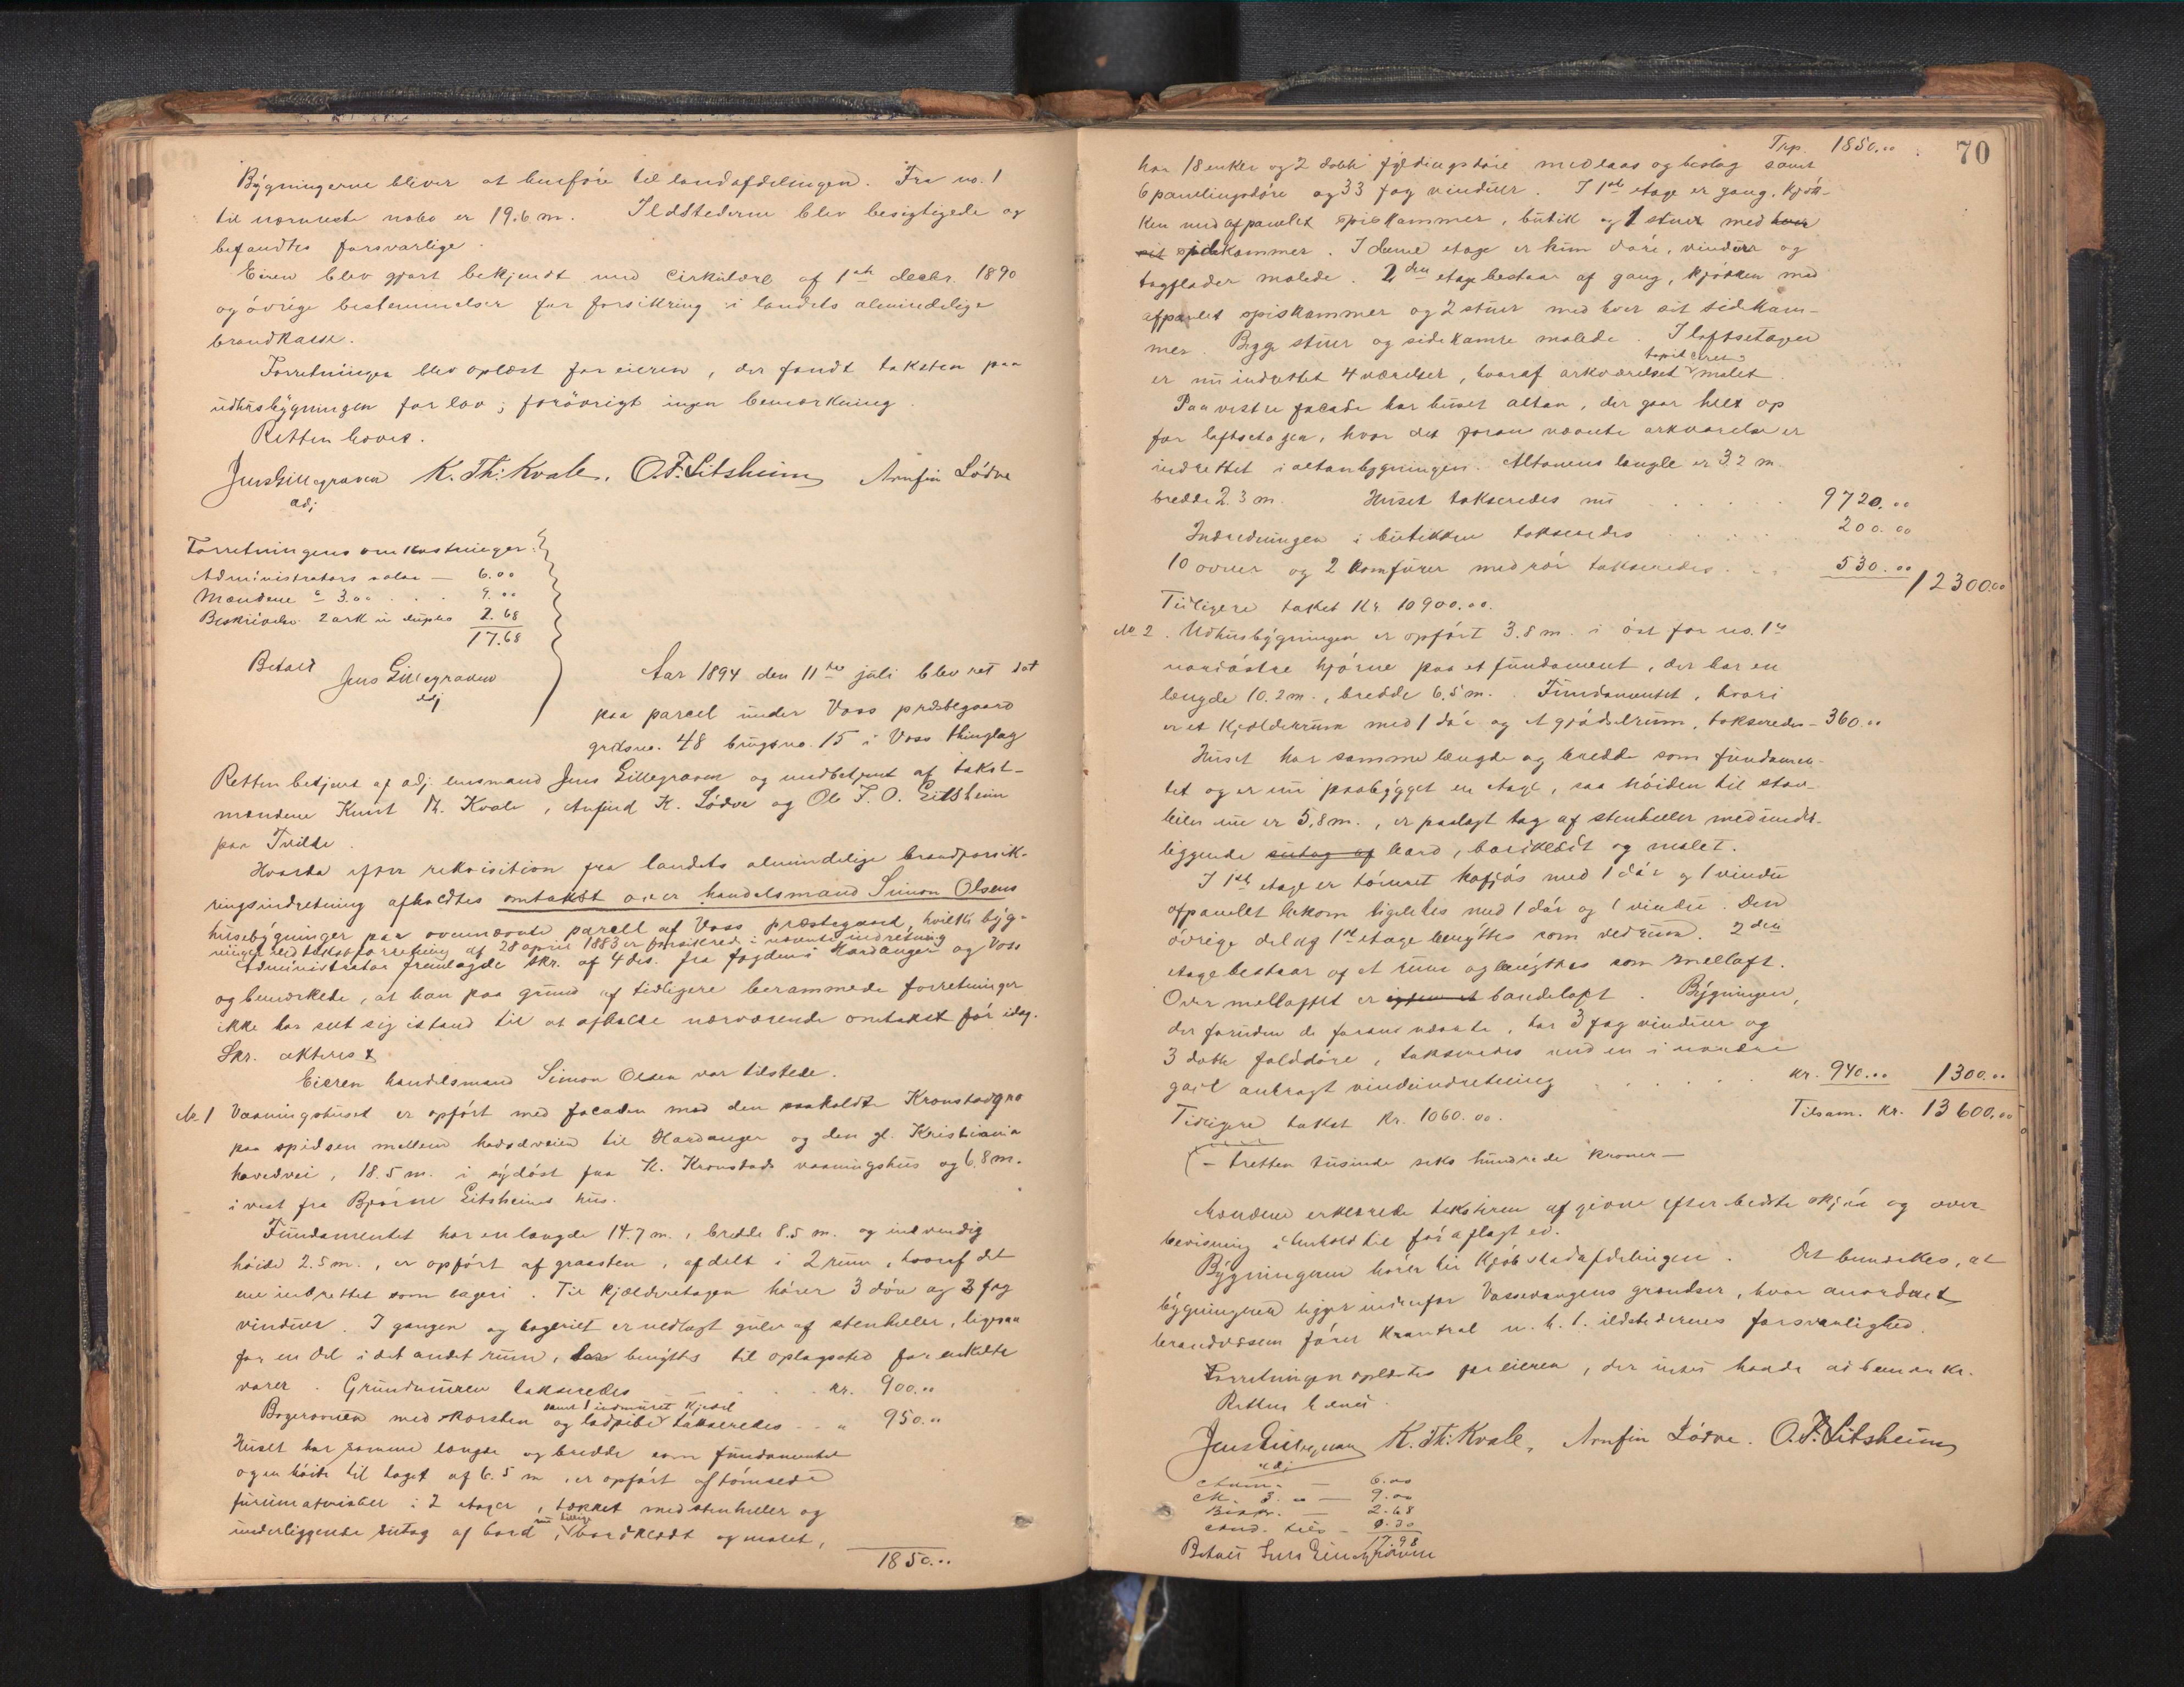 Bygningerne bliver at henføre til landafdelingen. Fra no. 1
til nærmeste nabo er 19.6 m. Ildstederne blev besigtigede og
befandtes forsvarlige.
Eieren blev gjort bekjendt med cirkulære af 1ste decbr. 1890
og øvrige bestemmelser for forsikring i landets almindelige
brandkasse.
Forretningen blev oplæst for eieren, der fandt taksten paa
udhusbygningen for lav; forøvrigt ingen bemærkning.
Retten hævet.
Jens Gillegraven K. Th: Kvale, O. F. Gitsheim Arnfin Lødve
adj
Forretningens omkostninger.
Administrators salær — 6.00
Mændene à 3.00 . . 9.00
Beskrivelse 2 ark in duplo 2.68
17.68
Betalt Jens Gillegraven
adj
Aar 1894 den 11te juli blev ret sat
paa parcel under Voss præstegaard
grdsno. 48 brugsno. 15 i Voss thinglag
Retten betjent af adj. lensmand Jens Gillegraven og medbetjent af takst-
mændene Knut Th. Kvale, Anfind K. Lødve og Ole F. O. Gitsheim
paa Tvilde.
Hvorda efter rekvisition fra landets almindelige brandforsik-
ringsindretning afholdtes omtakst over handelsmand Simon Olsens
husebygninger paa ovennævnte parcel af Voss præstegaard, hvilke byg-
ninger ved takstforretning af 28 april 1883 er forsikrede i nævnte indretning
Administrator fremlagde skr. af 4 ds. fra fogden i Hardanger og Voss
og bemærkede, at han paa grund af tidligere berammede forretninger
ikke har seet sig istand til at afholde nærværende omtakst før idag.
Skr. akteres.
Eieren handelsmand Simon Olsen var tilstede.
No. 1 Vaaningshuset er opført med facaden mod den saakaldte
paa spidsen mellem hovedveien til Hardanger og den gl. Kristiania
hovedvei, 18.5 m. i sydøst fra K. Kronstads vaaningshus og 6.8 m.
i vest fra Bjørne Gitsheims hus.
Fundamentet har en længde 14.7 m., bredde 8.5 m. og indvendig
høide 2.5 m., er opført af graasten, afdelt i 2 rum, hvoraf det
ene indrettet som bageri. Til kjælderetagen hører 3 døre og 3 fag
vinduer. I gangen og bageriet er nedlagt gulv af stenheller, ligesaa
for en del i det andet rum, der benyttes til oplagssted for enkelte
varer. Grundmuren takseredes . kr. 900.00
samt 1 indmuret kjedel
Bagerovnen med skorsten og ladpibe takseredes . . " 950.00
Huset har samme længde og bredde som fundamentet
og en høide til taget af 6.5 m, er opført af tømrede
furumaterialier i 2 etager, tækket med stenheller og
nu tillige
underliggende sutag af bord, bordklædt og malet,
1850.00
70
Trp. 1850.00
har 18 enkle og 2 dobb. fyldingsdøre med laas og beslag samt
6 panelingsdøre og 33 fag vinduer. I 1ste etage er gang, kjøk-
ken med afpanelet spiskammer, butik og 1 stue med hver
sit sidekammer. I denne etage er kun døre, vinduer og
tagflader malede. 2den etage bestaar af gang, kjøkken med
afpanelet spiskammer og 2 stuer med hver sit sidekam-
mer. Begge stuer og sidekamre malede. I loftsetagen
tapetseret
er nu indrettet 4 værelser, hvoraf arkværelset malet.
Paa vestre facade har huset altan, der gaar helt op
for loftsetagen, hvor det foran nævnte arkværelse er
indrettet i altanbygningen. Altanens længde er 3.2 m.
bredde 2.3 m. Huset takseredes nu . . . . 9720.00
Indredningen i butikken takseredes . . . . 200.00
10 ovner og 2 komfurer med rør takseredes . . 530.00 12300.00
Tidligere takst Kr. 10900.00.
No. 2. Udhusbygningen er opført 3.8 m. i øst for no. 1's
nordøstre hjørne paa et fundament, der har en
længde 10.2 m., bredde 6.5 m. Fundamentet, hvori
er et kjælderrum med 1 dør og et gjødselrum, takseredes - 360.00
Huset har samme længde og bredde som fundamen-
tet og er nu paabygget en etage, saa høiden til
nu er 5.8 m., er paalagt tag af stenheller med under-
liggende sutag af bord, bordklædt og malet.
I 1ste etage er tømret kofjøs med 1 dør og 1 vindu
afpanelet lokom ligeledes med 1 dør og 1 vindu. Den
øvrige del af 1ste etage benyttes som vedrum. 2den
etage bestaar af et rum og benyttes som melloft.
Over melloftet er igjen et bandeloft. Bygningen,
der foruden de foran nævnte, har 3 fag vinduer og
3 dobb. folddøre, takseredes med en i nordre
gavl anbragt vindeindretning . . . . kr. 940.00 1300.00
Tidligere takst kr. 1060.00. Tilsam. kr. 13600.00
— tretten tusinde seks hundrede kroner —
Mændene erklærede taksterne afgivne efter bedste skjøn og over-
bevisning i henhold til før aflagt ed.
Bygningerne hører til kjøbstadafdelingen. Det bemærkes, at
bygningerne ligger indenfor Vossevangens grændser, hvor anordnet
brandvæsen fører kontrol m. h. t. ildstedernes forsvarlighed.
Forretningen oplæstes for eieren, der intet havde at bemærke.
Retten hævet.
Jens Gillegraven K. Th: Kvale, Arnfin Lødve. O. F. Gitsheim
adj
Adm. — 6.00
M. 3.00 — 9.00
Beskr. — 2.68
0.30
17.98
Betalt Jens Gillegraven